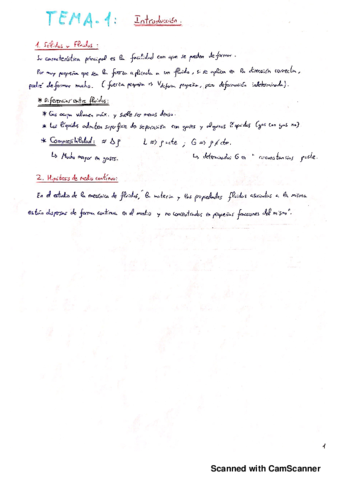 TEMA-1: Introducción.
1. Sólidos y Fluidos:
La característica principal es la facilidad con que se pueden deformar.
Por muy pequeña que sea la fuerza aplicada a un fluido, si se aplica en la dirección correcta,
puede deformar mucho. (fuerza pequeña → Vdeform pequeña, pero deformación indeterminada).
* Diferencias entre fluidos:
* Gas ocupa volumen máx. y suele ser menos denso.
* Los líquidos admiten superficie de separación con gases y algunos líquidos (gas con gas no)
* Compresibilidad: = Δρ L => ρ cte ; G => ρ ≠ cte.
↳ Mucho mayor en gases. En determinadas circunstancias
2. Hipótesis de medio continuo:
En el estudio de la mecánica de fluidos, "la materia y las propiedades físicas asociadas a la misma
están dispersas de forma continua en el medio y no concentradas en pequeñas fracciones del mismo".
1
Scanned with CamScanner